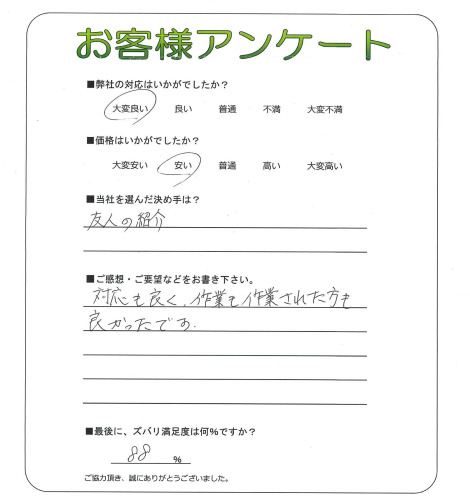 お客様アンケート
■弊社の対応はいかがでしたか？
大変良い 良い 普通 不満 大変不満
■価格はいかがでしたか？
大変安い 安い 普通 高い 大変高い
■当社を選んだ決め手は？
友人の紹介
■ご感想・ご要望などをお書き下さい。
対応も良く、作業も作業された方も
良かったです.
■最後に、ズバリ満足度は何％ですか？
88 ％
ご協力頂き、誠にありがとうございました。